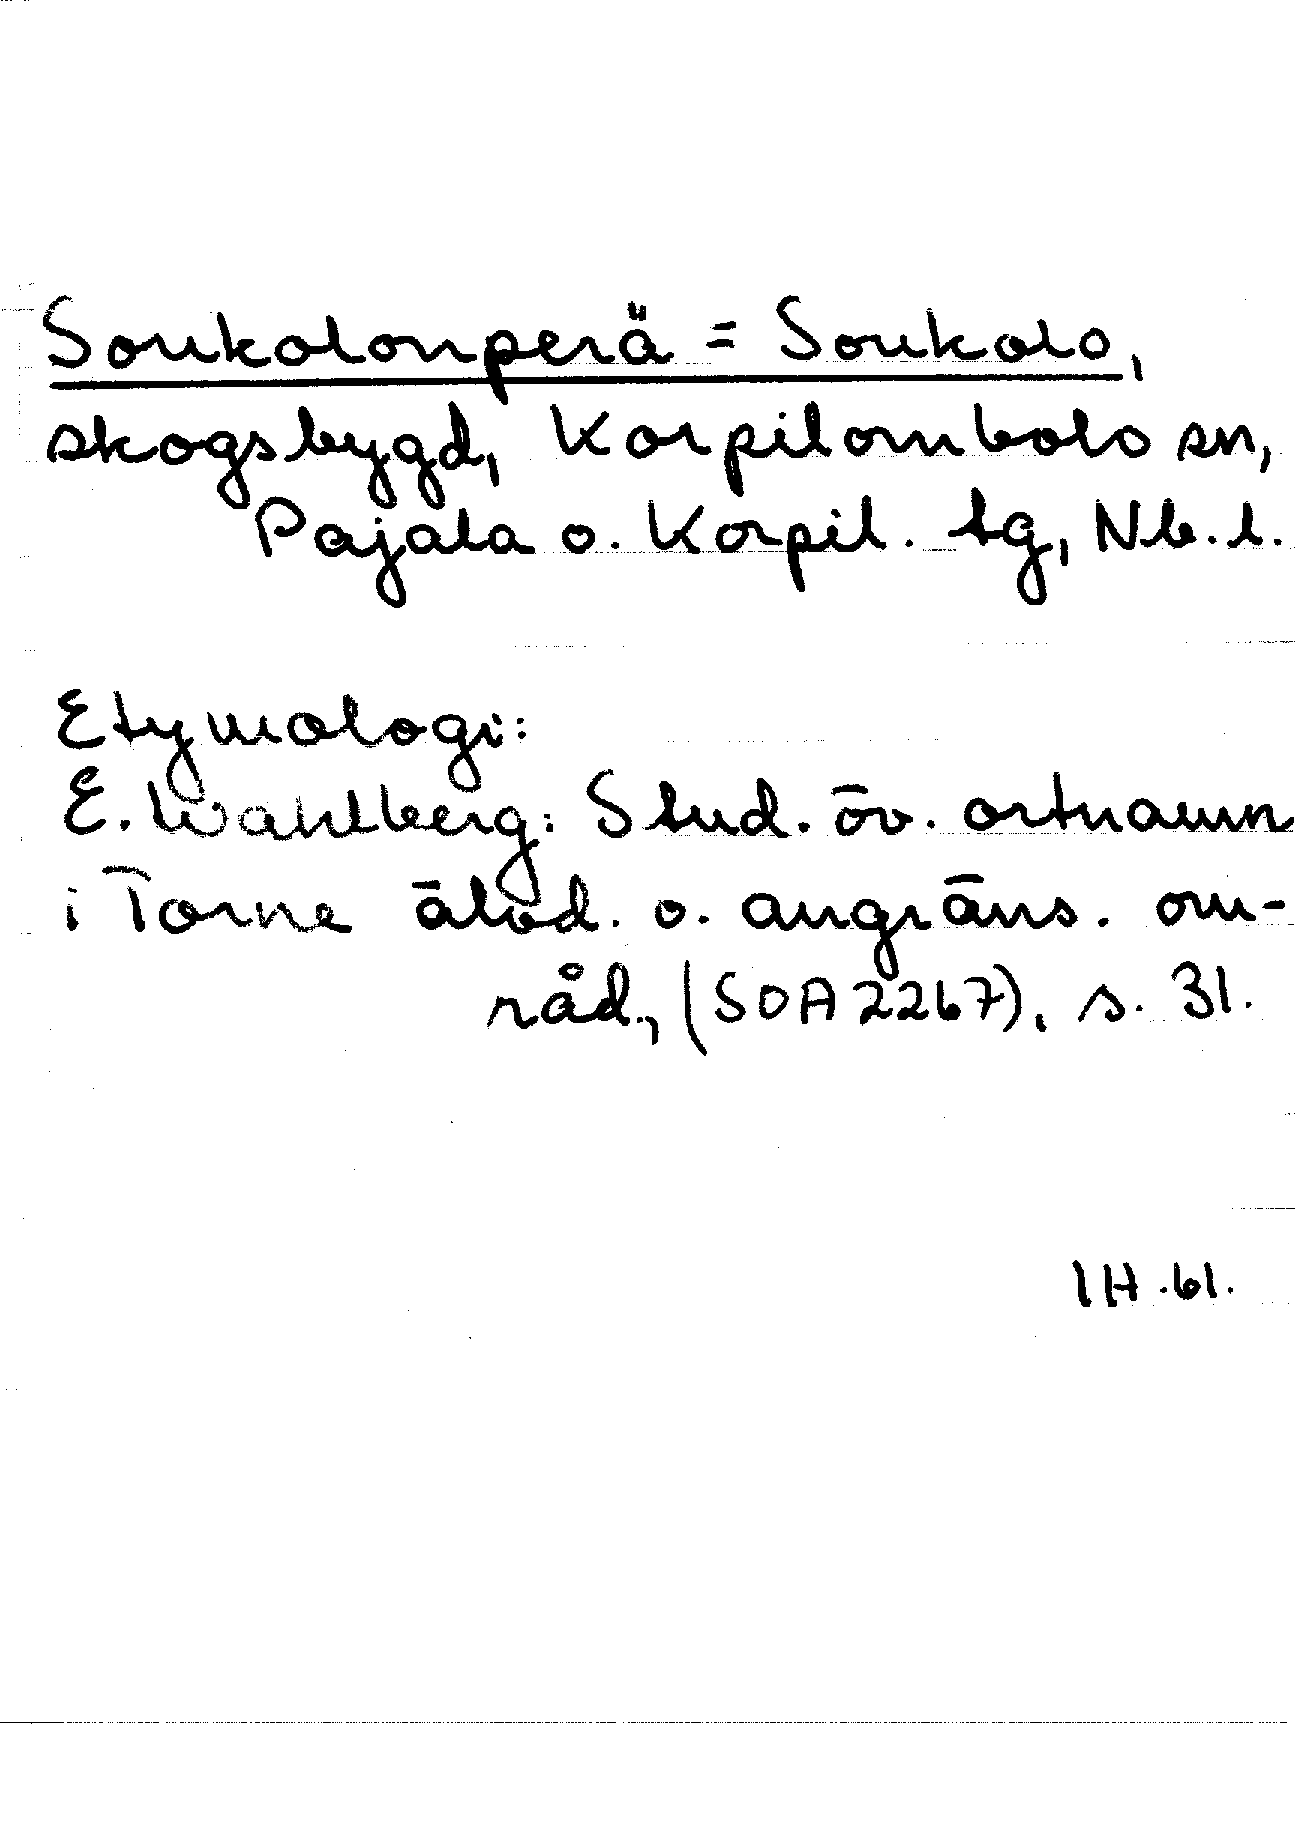 Soukolonperä = Soukolo,
skogsbygd, Korpilombolo sn,
Pajala o. Korpil. tg, Nb.l.
Etymologi:
E. Wahlberg: Stud. öv. ortnamn
i Torne älvd. o. angräns. om-
råd., (SOA 2267), s. 31.
IH .61.